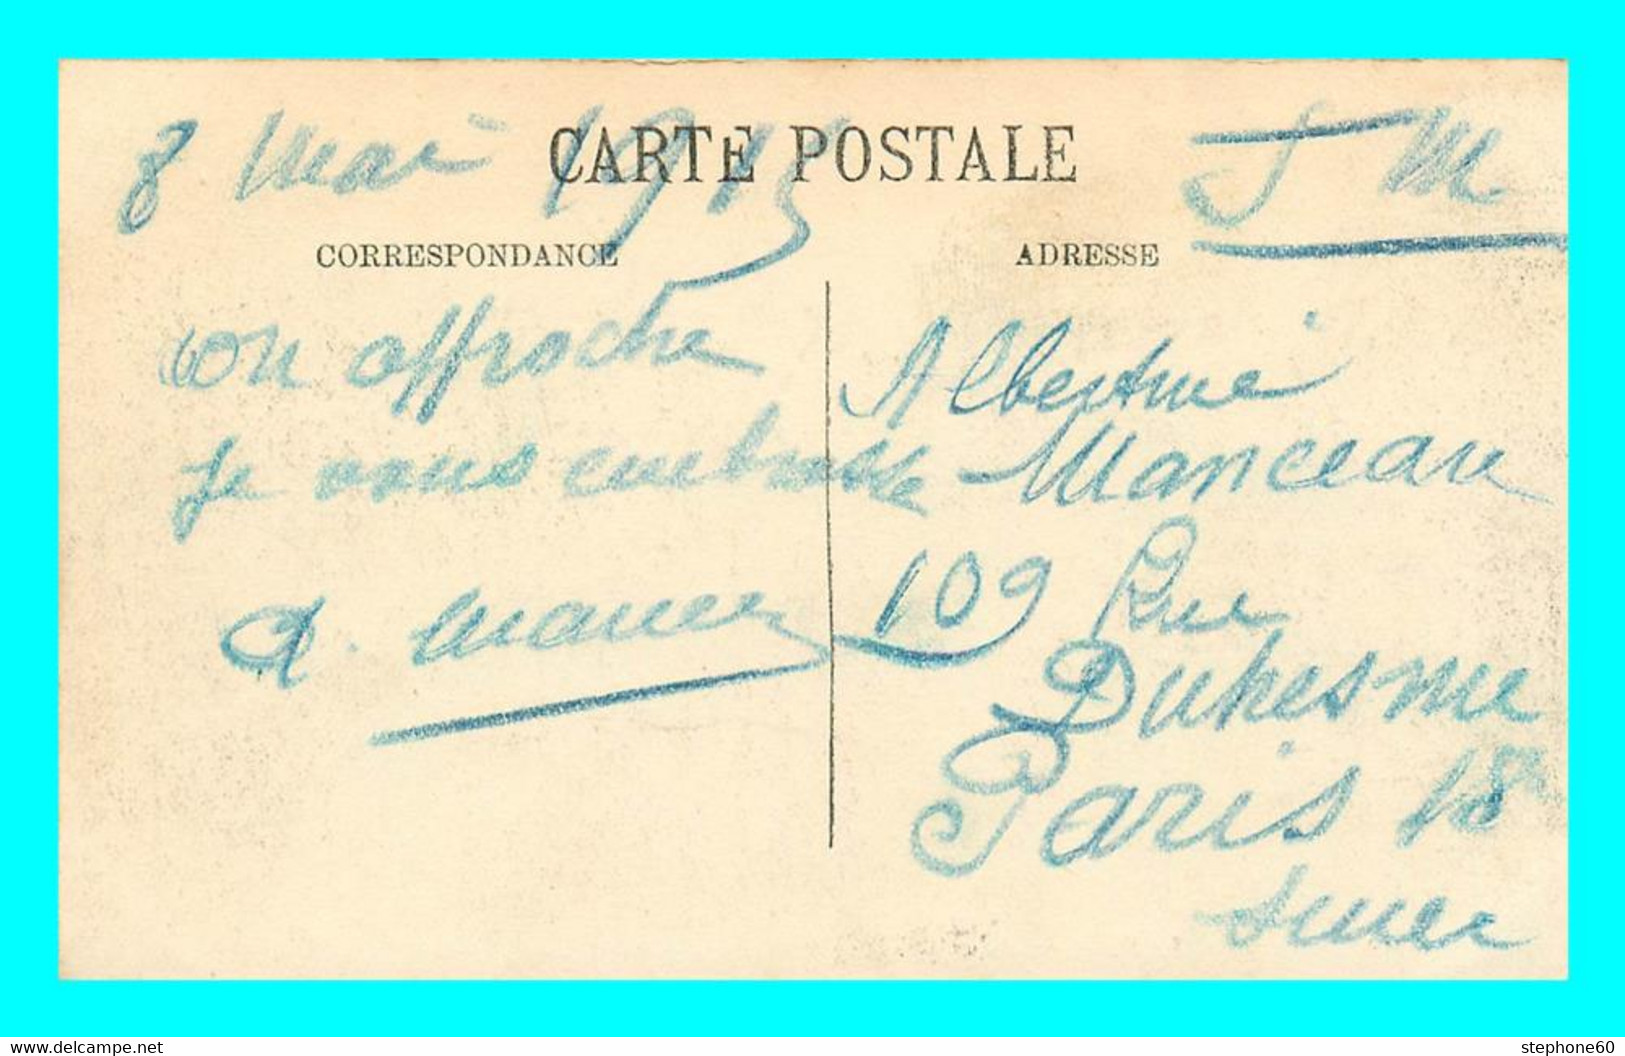 8 Mai 1915
CARTE POSTALE
S M.
CORRESPONDANCE
ADRESSE
on approche
je vous embrasse
A.
Albertine
Manceau
109 Rue
Duhesme
Paris 18e
delcampe.net
stephone60